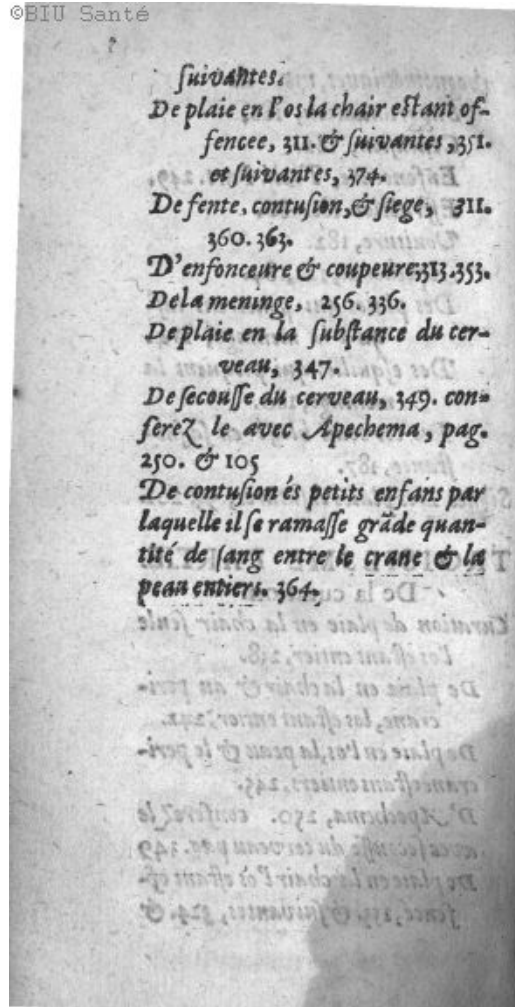 ©BIU Santé
ſuivantes.
De plaie en l'os la chair eſtant of-
fencee, 311. & ſuivantes, 351.
et ſuivantes, 374.
De fente, contuſion, & ſiege, 311.
360. 363.
D'enfonceure & coupeure, 313. 353.
De la meninge, 256. 336.
De plaie en la ſubſtance du cer-
veau, 347.
De ſecouſſe du cerveau, 349. con-
ferez le avec Apechema, pag.
250. & 105
De contuſion és petits enfans par
laquelle il ſe ramaſſe grãde quan-
tité de ſang entre le crane & la
peau entiers. 364.